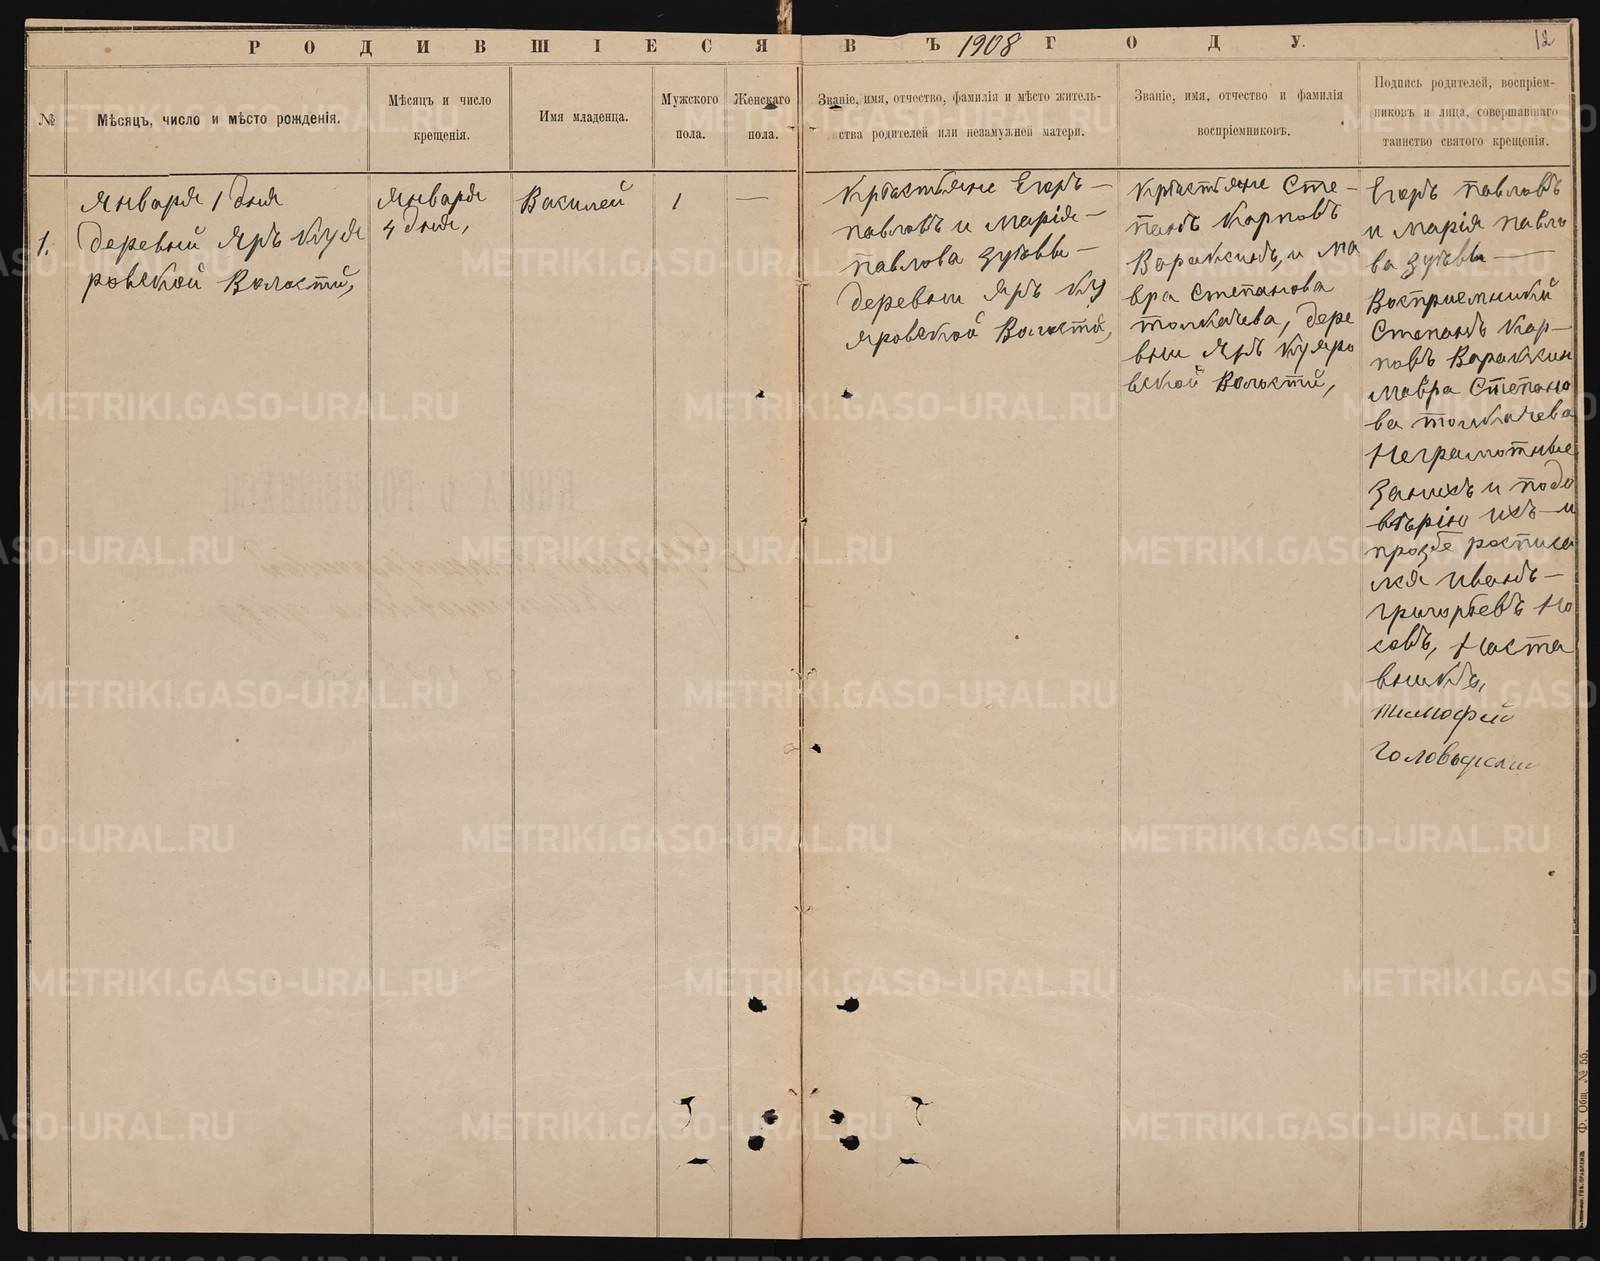 РОДИВШІЕСЯ ВЪ 1908 ГОДУ.
12
№
Мѣсяцъ, число и мѣсто рожденія.
Мѣсяцъ и число
крещенія.
Имя младенца.
Мужского
пола.
Женскаго
пола.
Званіе, имя, отчество, фамилія и мѣсто житель-
ства родителей или незамужней матери.
Званіе, имя, отчество и фамилія
воспріемниковъ.
Подпись родителей, воспріем-
никовъ и лица, совершавшаго
таинство святого крещенія.
1.
Января 1 дня
деревни Яръ Куя
ровской Волости,
Января
4 дня,
Василей
1
—
Крѣстьяне Егоръ —
павловъ и Марія —
павлова Зуѣвы —
деревни Яръ Ку
яровской Волости,
Крѣстьяне Сте-
панъ Карповъ
Варакинъ, и Ма
вра Степанова
толкачева, дере
вни Яръ Куяро
вской Волости,
Егоръ павловъ
и Марія павло
ва Зуѣвы —
Восприемники
Степанъ Кар-
повъ Варакин
Мавра Степано
ва толкачева
Неграмотные
Занихъ и подо
вѣрію ихъ и
прозбе росписа
лся Иванъ —
григорьевъ Но
совъ, Наста
вникъ,
тимофей
METRIKI.GASO-URAL.RU
Ф. Общ. № 55.